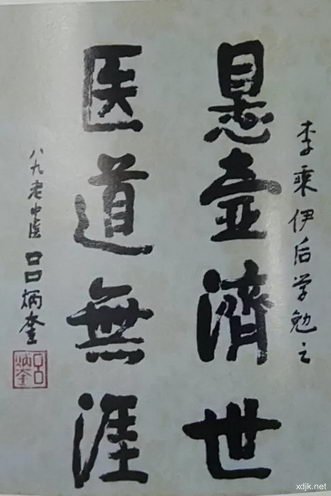 李乘伊后学勉之
悬壶濟世
医道無涯
八九老中医吕炳奎
吕炳奎
xdjk.net